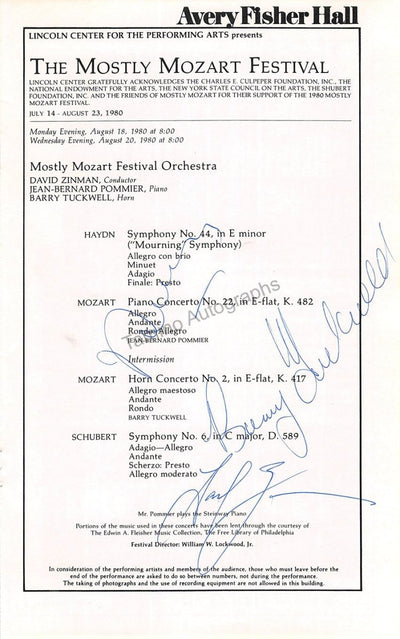 Avery Fisher Hall
LINCOLN CENTER FOR THE PERFORMING ARTS presents
THE MOSTLY MOZART FESTIVAL
LINCOLN CENTER GRATEFULLY ACKNOWLEDGES THE CHARLES E. CULPEPER FOUNDATION, INC., THE
NATIONAL ENDOWMENT FOR THE ARTS, THE NEW YORK STATE COUNCIL ON THE ARTS, THE SHUBERT
FOUNDATION, INC. AND THE FRIENDS OF MOSTLY MOZART FOR THEIR SUPPORT OF THE 1980 MOSTLY
MOZART FESTIVAL.
JULY 14 - AUGUST 23, 1980
Monday Evening, August 18, 1980 at 8:00
Wednesday Evening, August 20, 1980 at 8:00
Mostly Mozart Festival Orchestra
DAVID ZINMAN, Conductor
JEAN-BERNARD POMMIER, Piano
BARRY TUCKWELL, Horn
HAYDN Symphony No. 44, in E minor
("Mourning" Symphony)
Allegro con brio
Minuet
Adagio
Finale: Presto
Tamino Autographs
MOZART Piano Concerto No. 22, in E-flat, K. 482
Allegro
Andante
Rondo: Allegro
JEAN-BERNARD POMMIER
Intermission
MOZART Horn Concerto No. 2, in E-flat, K. 417
Allegro maestoso
Andante
Rondo
BARRY TUCKWELL
Barry Tuckwell
SCHUBERT Symphony No. 6, in C major, D. 589
Adagio—Allegro
Andante
Scherzo: Presto
Allegro moderato
Mr. Pommier plays the Steinway Piano
Portions of the music used in these concerts have been lent through the courtesy of
The Edwin A. Fleisher Music Collection, The Free Library of Philadelphia
Festival Director: William W. Lockwood, Jr.
In consideration of the performing artists and members of the audience, those who must leave before the
end of the performance are asked to do so between numbers, not during the performance.
The taking of photographs and the use of recording equipment are not allowed in this building.